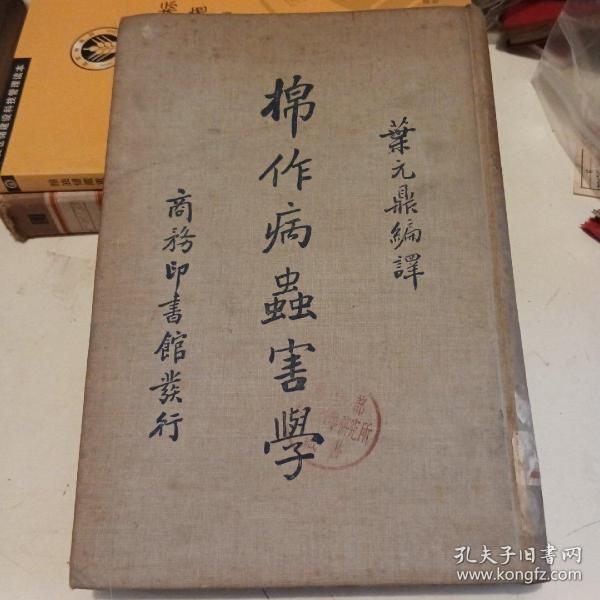 葉元鼎編譯
棉作病蟲害學
商務印書館發行
孔夫子旧书网
www.kongfz.com